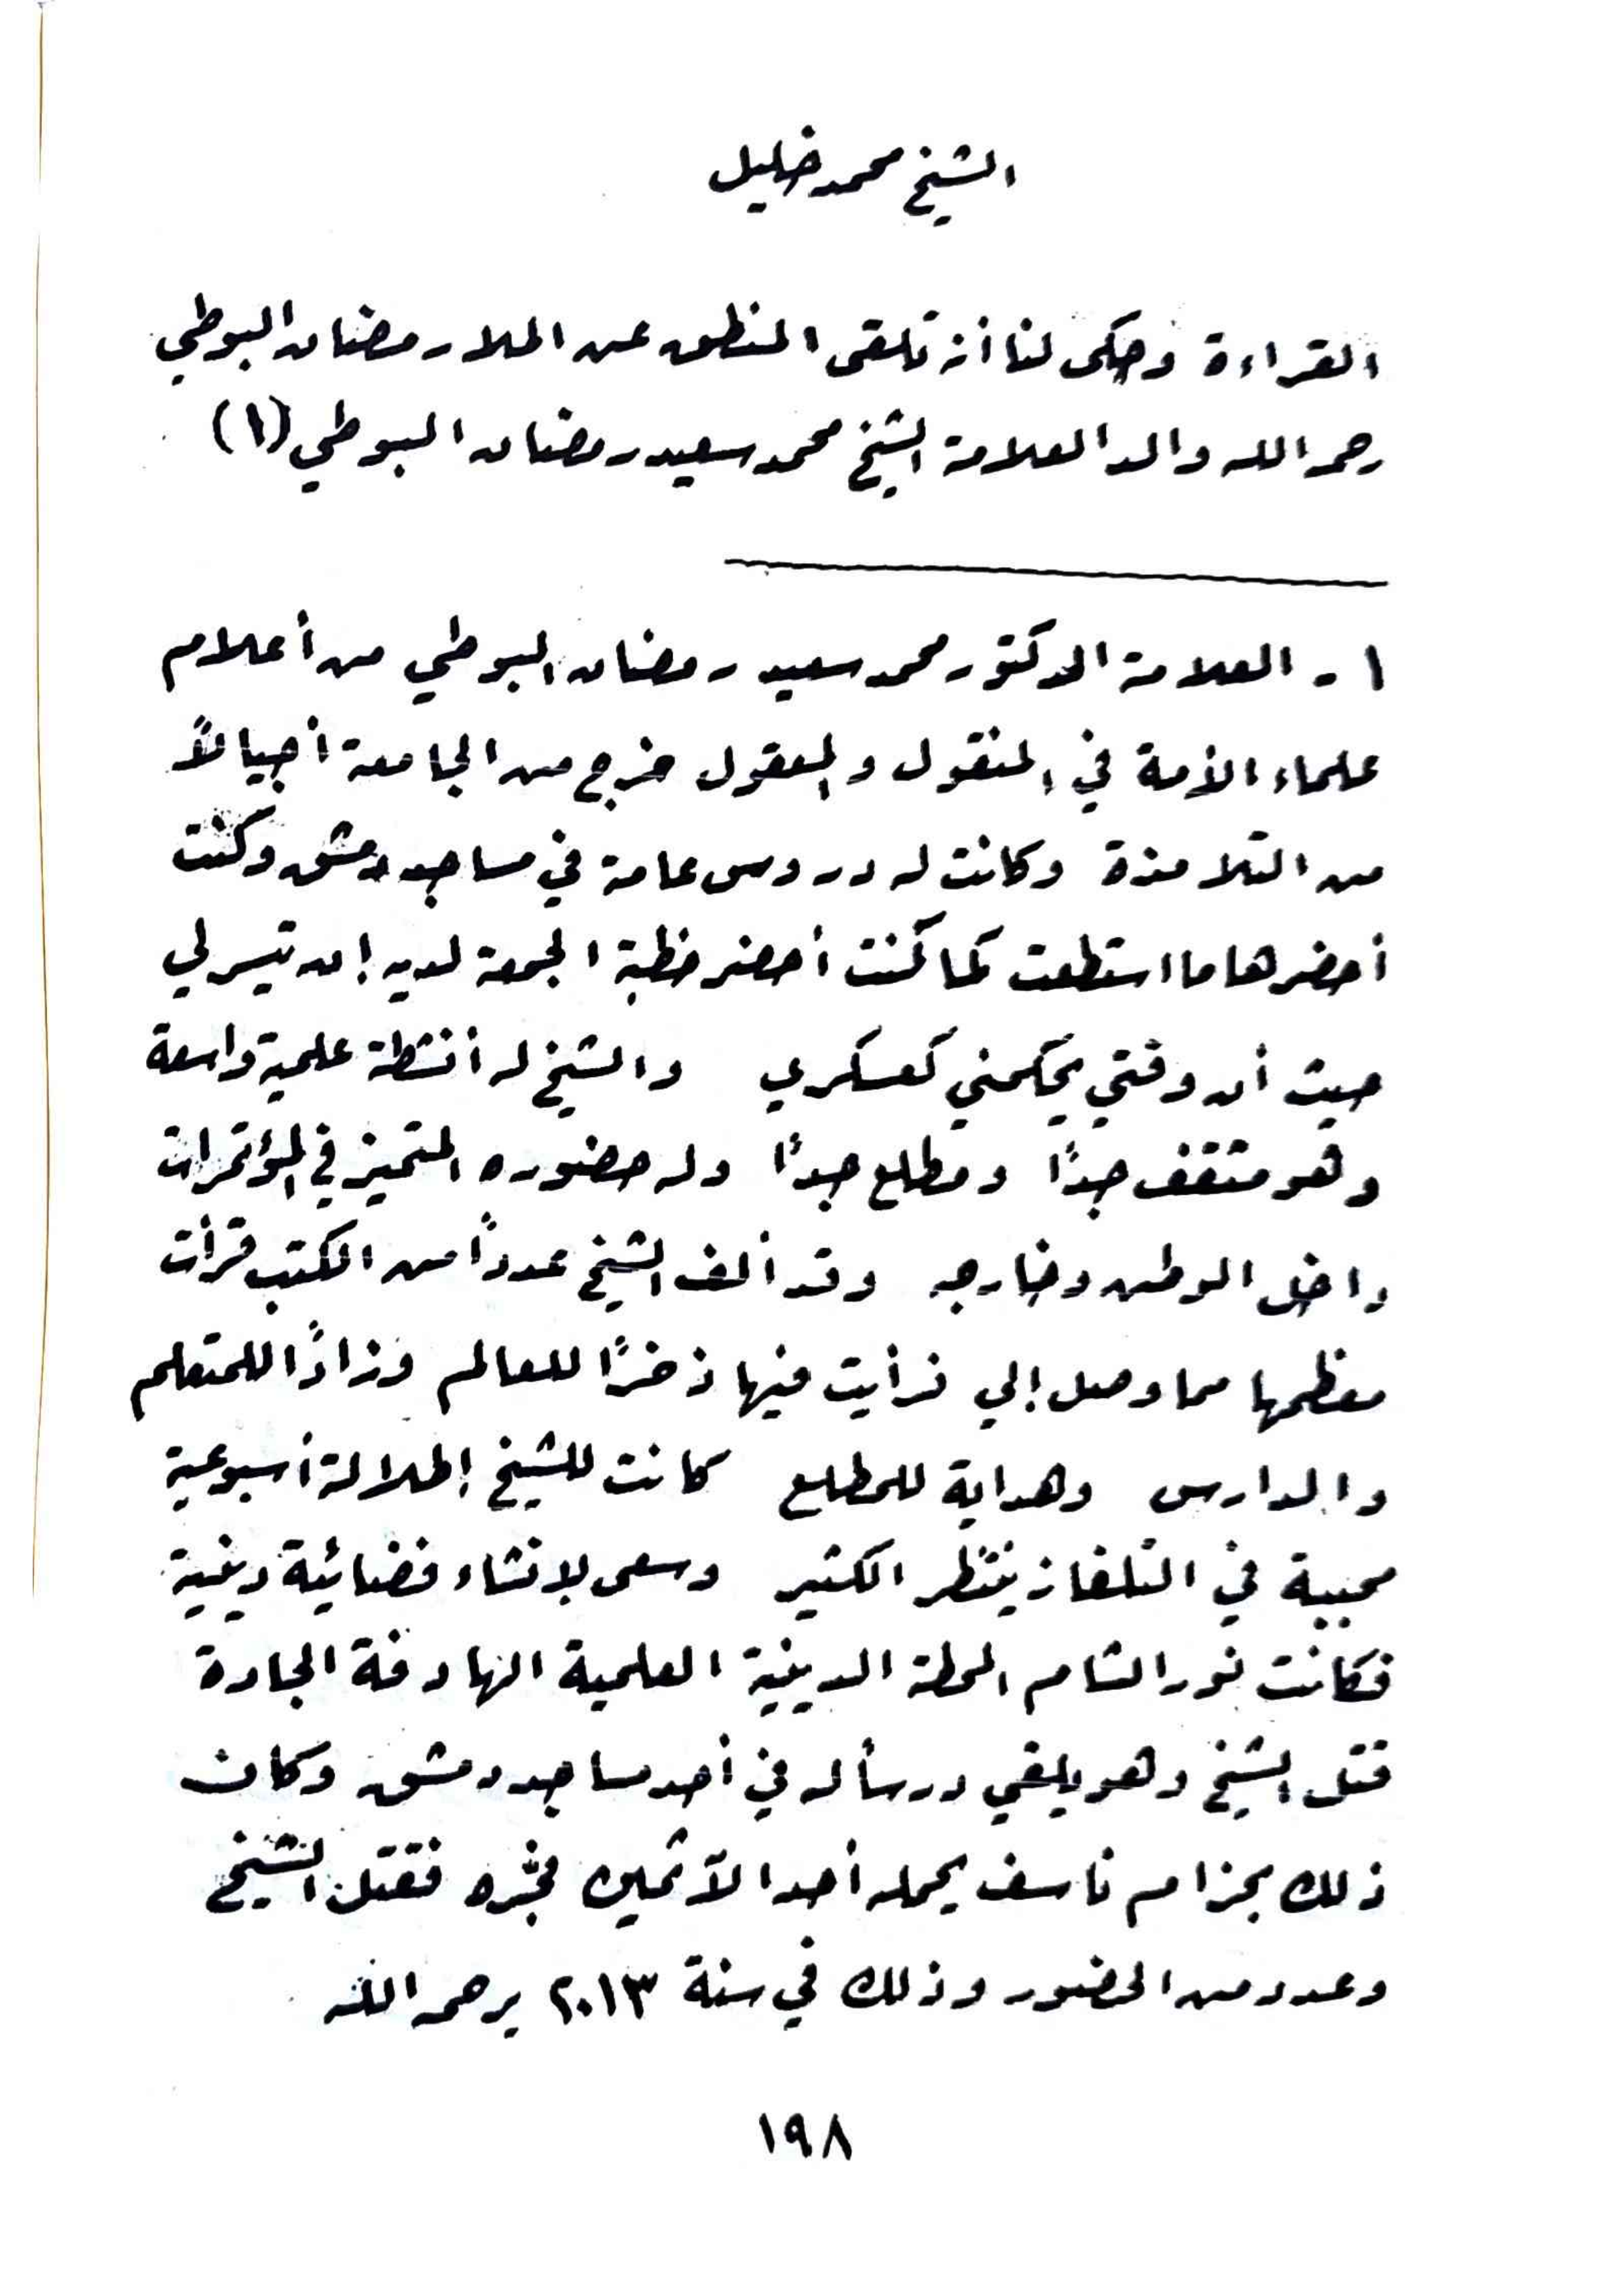 الشيخ محمد خليل
القراءة وحكى لنا أنه تلقى المنطق عن الملا رمضان البوطي
رحمه الله والد العلامة الشيخ محمد سعيد رمضان البوطي (١)
١ - العلامة الدكتور محمد سعيد رمضان البوطي من أعلام
علماء الأمة في المنقول والمعقول خرج من الجامعة أجيالاً
من التلامذة وكانت له دروس عامة في مساجد دمشق وكنت
أحضرها ما استطعت كما كنت أحضر خطبة الجمعة لديه إن تيسر لي
حيث أن وقتي يحكمني كعسكري والشيخ له أنشطة علمية واسعة
وهو مثقف جداً ومطلع جداً وله حضوره المتميز في المؤتمرات
داخل الوطن وخارجه وقد ألف الشيخ عدداً من الكتب قرأت
معظمها مما وصل إلي فرأيت فيها ذخراً للعالم وزاداً للمتعلم
والدارس وهداية للمطلع كانت للشيخ إطلالة أسبوعية
محببة في التلفاز ينتظر الكثير وسعى لإنشاء فضائية دينية
فكانت نور الشام المحطة الدينية العلمية الهادفة الجادة
قتل الشيخ وهو يلقي درساً له في أحد مساجد دمشق وكان
ذلك بحزام ناسف يحمله أحد الآثمين فجره فقتل الشيخ
وعدد من الحضور وذلك في سنة ٢٠١٣ يرحمه الله
١٩٨